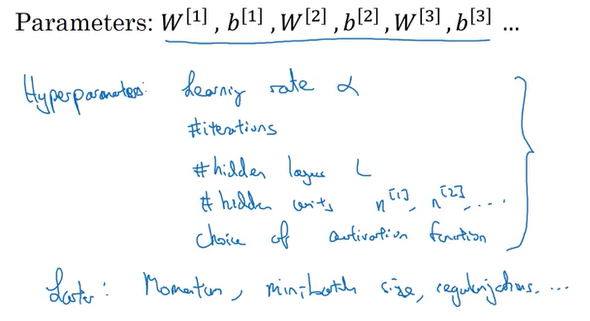 Parameters: W[1], b[1], W[2], b[2], W[3], b[3] ...
Hyperparameters: Learning rate α
#iterations
#hidden layers L
#hidden units n[1], n[2], ....
choice of activation function
Later: Momentum, mini-batch size, regularizations. ...